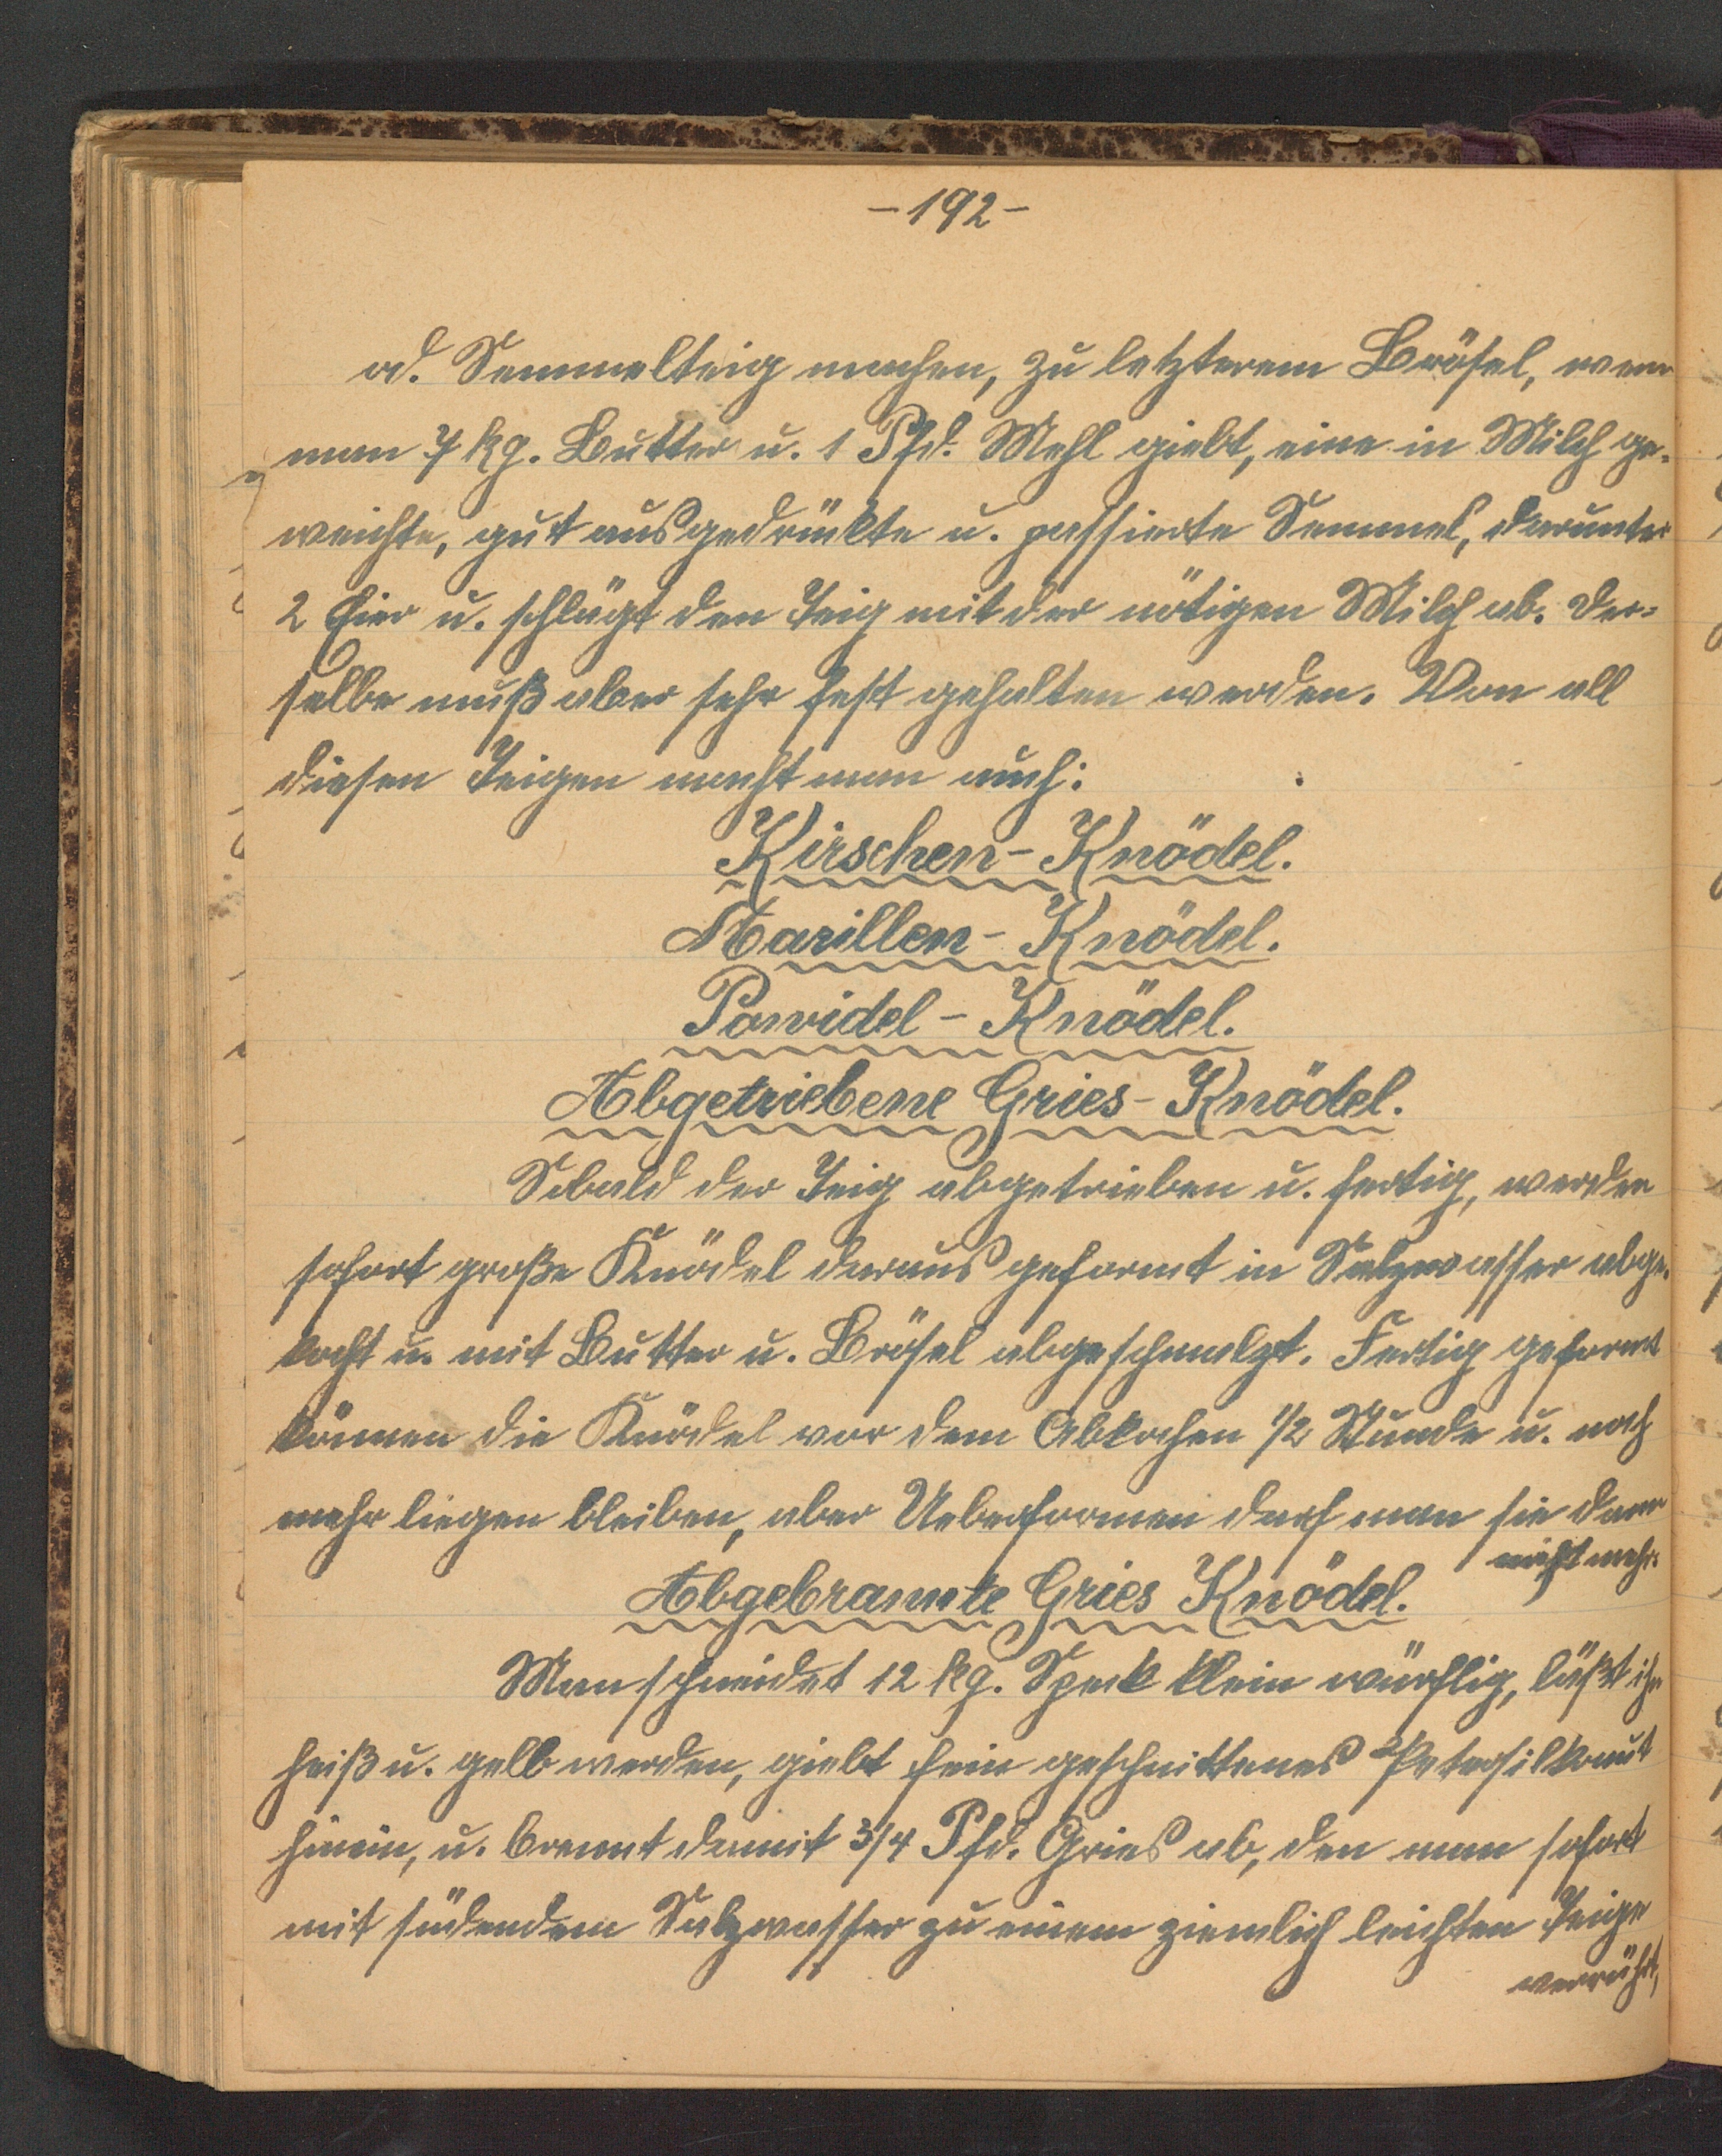 - 192 -
od. Semmelteig machen, zu letzterem Brösel, wenn
man 7 kg. Butter u. 1 Pfd. Mehl giebt, eine in Milch ge-
weichte, gut ausgedrückte u. passierte Semmel, darunter
2 Eier u. schlägt den Teig mit der nötigen Milch ab. Der-
selbe muß aber sehr fest gehalten werden. Von all
diesen Teigen macht man auch:
Kirschen-Knödel.
Marillen-Knödel.
Powidel-Knödel.
Abgetriebene Gries-Knödel.
Sobald der Teig abgetrieben u. fertig, werden
sofort große Knödel daraus geformt in Salzwasser abge-
kocht u. mit Butter u. Brösel abgeschmalzt. Fertig geformt
können die Knödel vor dem Abkochen 1/2 Stunde u. noch
mehr liegen bleiben, aber Ueberformen darf man sie dann
nicht mehr.
Abgebrannte Gries Knödel.
Man schneidet 12 kg. Speck klein würflig, läßt ihn
heiß u. gelb werden, giebt fein geschnittenes Petersilkraut
hinein, u. brennt damit 3/4 Pfd. Gries ab, den man sofort
mit südendem Salzwasser zu einem ziemlich leichten Teige
verrührt,